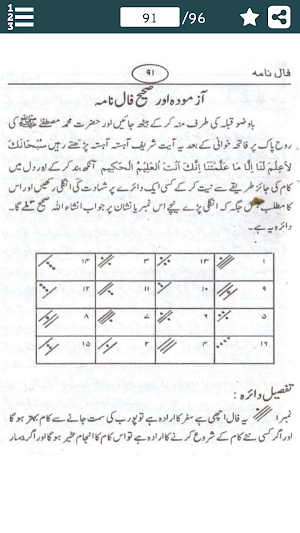 1
2
3
91 /96
فال نامہ
۹۱
آزمودہ اور صحیح فال نامہ
باوضو قبلہ کی طرف منہ کر کے بیٹھ جائیں اور حضرت محمد مصطفےٰ ﷺ کی
روح پاک پر فاتحہ خوانی کے بعد یہ آیت شریف آہستہ آہستہ پڑھتے رہیں سُبْحَانَكَ
لَا عِلْمَ لَنَا إِلَّا مَا عَلَّمْتَنَا إِنَّكَ أَنْتَ الْعَلِيْمُ الْحَكِيْمِ آنکھ بند کر کے اور دل میں
کام کی جائز طریقے سے نیت کر کے کسی ایک دائرے پر شہادت کی انگلی رکھیں اور اس
کا مطلب جس جگہ کہ انگلی پڑے نیچے اس نمبر یا نشان پر جواب انشاء اللہ صحیح ملے گا۔
دائرہ یہ ہے۔
۱ ۱۳ ۳ ۱۴
۹ ۱۰ ۱۱ ۱۲
۵ ۶ ۷ ۸
۱۶ ۴ ۲ ۱۵
تفصیل دائرہ :
نمبر۱ یہ فال اچھی ہے سفر کا ارادہ ہے تو پورب کی سمت جانے سے کام بہتر ہو گا
اور اگر کسی نئے کام کے شروع کرنے کا ارادہ ہے تو اس کام کا انجام خیر ہو گا اور اگر